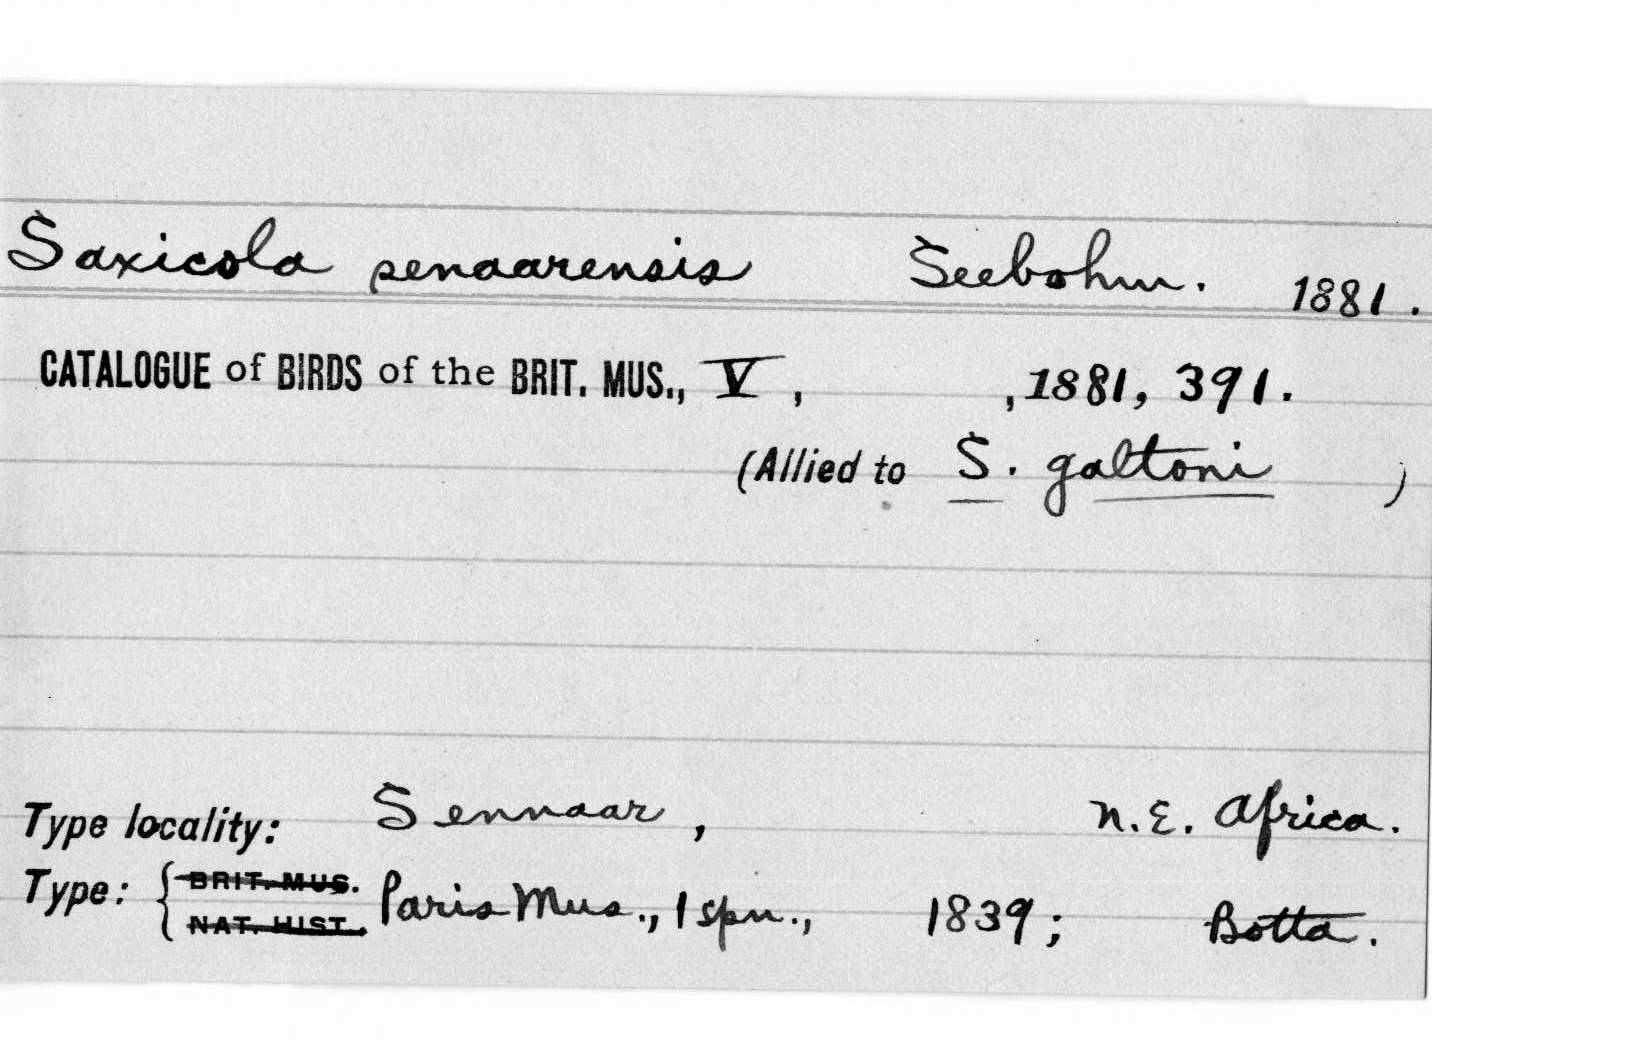 Saxicola senaarensis Seebohm. 1881.
CATALOGUE of BIRDS of the BRIT. MUS., V, , 1881, 391.
(Allied to S. galtoni )
Type locality: Sennaar, N.E. Africa.
Type: { BRIT. MUS. NAT. HIST. Paris Mus., 1 spn., 1839; Botta.